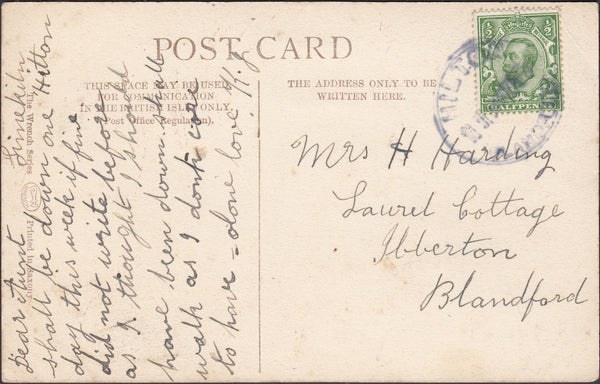 POST CARD
THIS SPACE MAY BE USED
FOR COMMUNICATION
IN THE BRITISH ISLES ONLY.
(Post Office Regulation).
THE ADDRESS ONLY TO BE
WRITTEN HERE.
HALFPENNY
Mrs H Harding
Laurel Cottage
Ibberton
Blandford
The Wrench Series
Printed in Saxony
Limekiln
Hilton
Dear Aunt
shall be down one
day this week if fine
did not write before
as I thought I should
have been down. shall
walk as I dont care
to have - alone love